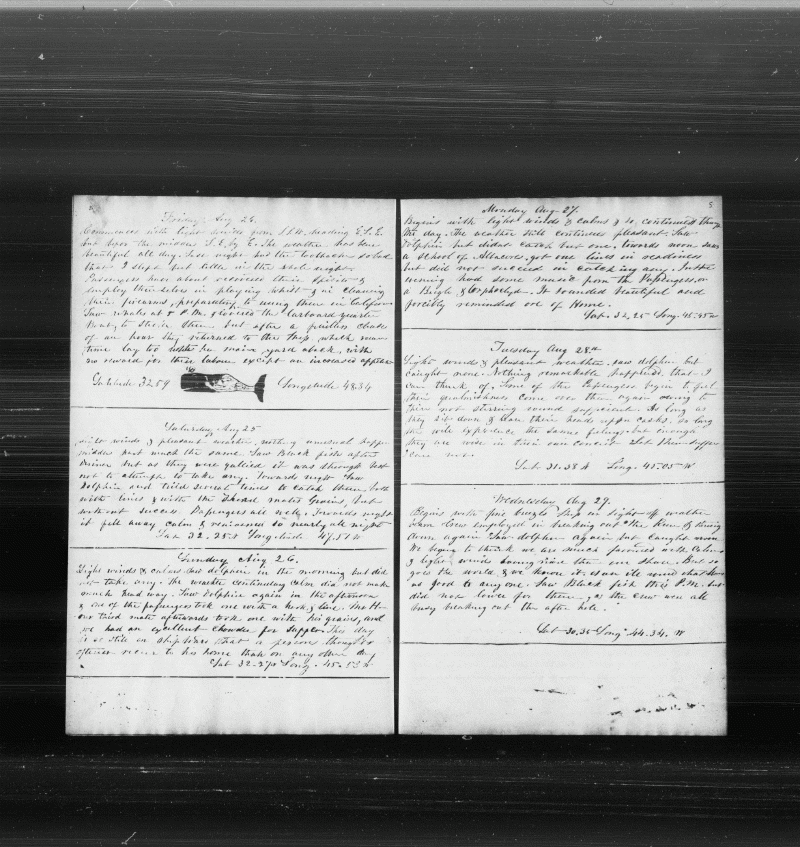 Friday Aug 24.
Commences with light winds from S.S.W. heading E.S.E.
but upon the S.E. by E. The weather has been
beautiful all day. Last night had the toothache so bad
that I slept but little in the whole night.
Passengers have about recovered their Spirits &
employ themselves in playing whist & in cleaning
their firearms, preparatory to using them in California
Saw whales at P.M. the larboard quarter
them but after a fruitless chase
of an hour they returned to the Ship, which
time lay too with her main yard aback, with
no reward for their labour except an increased appetite
Latitude 32.59 Longitude 48.34
Saturday Aug 25
winds & pleasant weather, nothing unusual happe
midday part much the same. Saw Black fish after
Dinner but as they were gallied it was thought best
not to attempt to take any. Towards night saw
Dolphin and tried several times to catch them, both
with lines & with the mates Grains, but
without success. Passengers all well. Towards night
it fell away calm & remained so nearly all night
Lat 32.25 Longitude 47.51 W
Sunday Aug 26.
Light winds & calms Saw dolphin in the morning but did
not take any. The weather continuing calm did not make
much head way. Saw dolphin again in the afternoon
& one of the passengers took one with a hook & line. Mr H
our third mate afterwards took one with his grains, and
we had an excellent Chowder for Supper. This day
is so still in Ship that a person thoughts
oftener to his home than on any other day
Lat 32.27 Long. 45.53 W
5
Monday Aug 27.
Begins with light winds & calms & so continued through
the day. The weather still continues pleasant. Saw
Dolphin but did not catch but one. towards noon saw
a School of Albacores, got our lines in readiness
but did not succeed in catching any. In the
evening had some music from the Passengers on
a Bugle & It sounded beautiful and
forcibly reminded one of Home.
Lat. 32.25 Long. 45.45 W
Tuesday Aug 28th
Light winds & pleasant weather. saw dolphin but
caught none. Nothing remarkable happened that I
can think of. Some of the Passengers begin to feel
their qualmishness come over them again owing to
their not stirring round sufficient. As long as
they sit down & lean their heads upon casks, so long
they will experience the same feelings but enough
they are wise in their own conceit Let them suffer
care not.
Lat 31.38 N Long. 45.05 W
Wednesday Aug 29.
Begins with fine breeze Ship in sight off weather
beam Crew employed in breaking out the Run & stowing
down again Saw dolphin again but caught none
We begin to think we are much favored with Calms
& light winds having more than our share. But so
goes the world & we know it is an ill wind that blows
no good to any one. Saw Black fish this P.M. but
did not lower for them, as the crew were all
busy breaking out the after hole.
Lat 30.35 Long 44.34. W